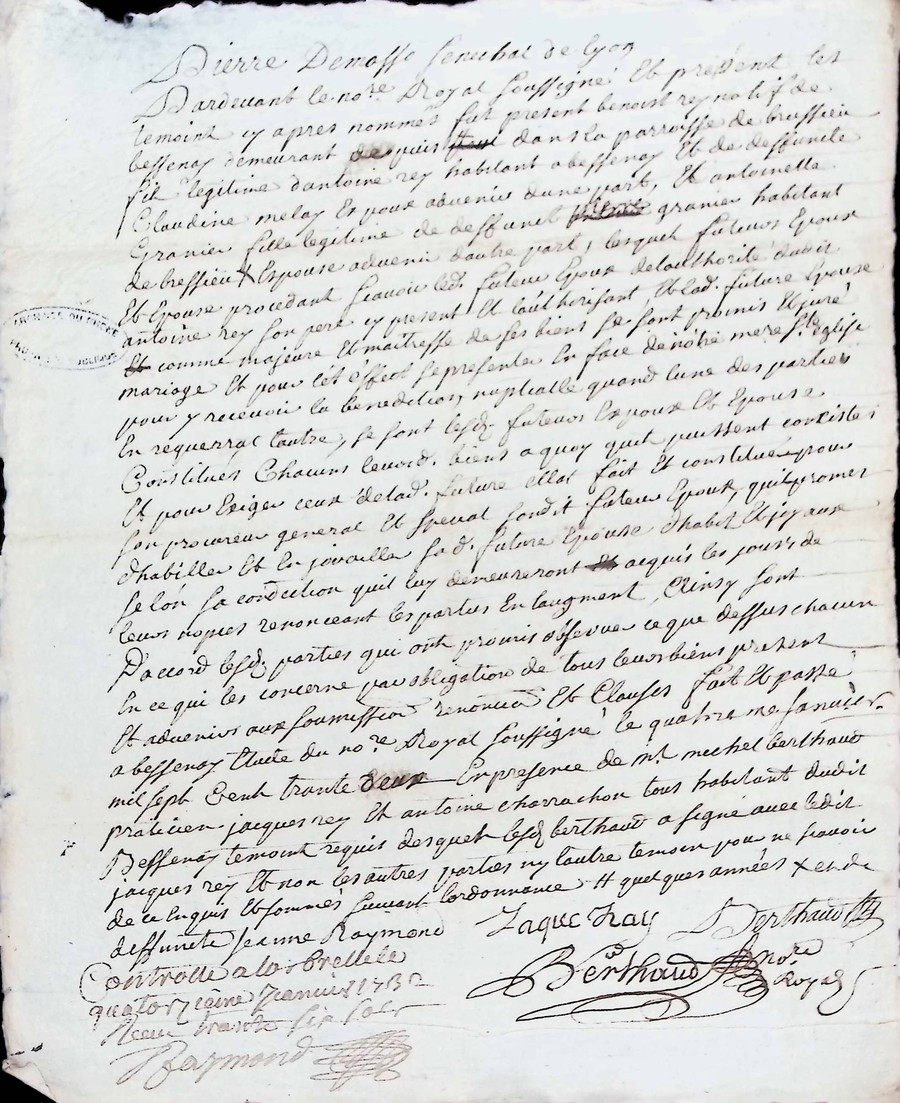 Pierre Demasso Senechal de Lyon
Pardevant le nore Royal soussigné Et présent les
temoint cy apres nommés fut present benoist rey natif de
bessenay demeurant depuis dans la parroisse de brussieu
fils legitime d'antoine rey habitant a bessenay Et de deffuncte
Claudine melay Expoux advenir dune part, Et antoinette
Granier fille legitime de deffunct granier habitant
de bressieu x Espouse advenir dautre part, lesquels futeurs Epoux
Et Epouse procedant scavoir led. futeur Epoux delauthorité dudit
antoine rey son pere cy present Et lauthorisant, Et lad. future Epouse
comme majeure Et maitresse de ses biens se sont promis Et juré
mariage Et pour cet effect se presenter En face de nôtre mere Ste église
pour y recevoir la benediction nuptialle quand lune des parties
En requerrat lautre, se sont lesd. futeurs Expoux Et Epouse
Constitués Chacuns leursd. biens a quoy quil puissent consister
Et pour Exiger ceux de lad. future Ellat fait Et constitué pour
son procureur general Et special sondit futeur Epoux, quil promet
d'habiller Et En joyailler sad. future Epouse d'habit Et joyaux
selon sa condiction quil luy demeureront acquis les jours de
leurs nopces renonceant les parties En laugment, Ainsy sont
D'accord lesd. parties qui ont promis observer ce que dessus chacun
En ce qui les concerne par obligation de tous leurs biens present
Et advenirs aux soumission renoncia Et Clauses fait Et passé
a bessenay Etude du nore Royal soussigné le quatre me Janvier
mil sept Cent trante deux En presence de mr michel berthaud
praticien jacques rey Et antoine charrachon tous habitant dudit
Bessenay temoint requis desquels lesd berthaud a signé avec ledit
jacques rey Et non les autres parties ny lautre temoin pour ne scavoir
de ce Enquis Et sommés suivant lordonnance # quelques années x et de
deffuncte Jeanne Raymond
Jaque Ray
Berthaud
Berthaud nore
Royal
Controllé a larbrelle le
quatorzieme Janvier 1732
Receu trante six sols
Raymond